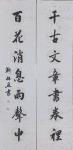 千古文章書卷裡
百花消息雨聲中